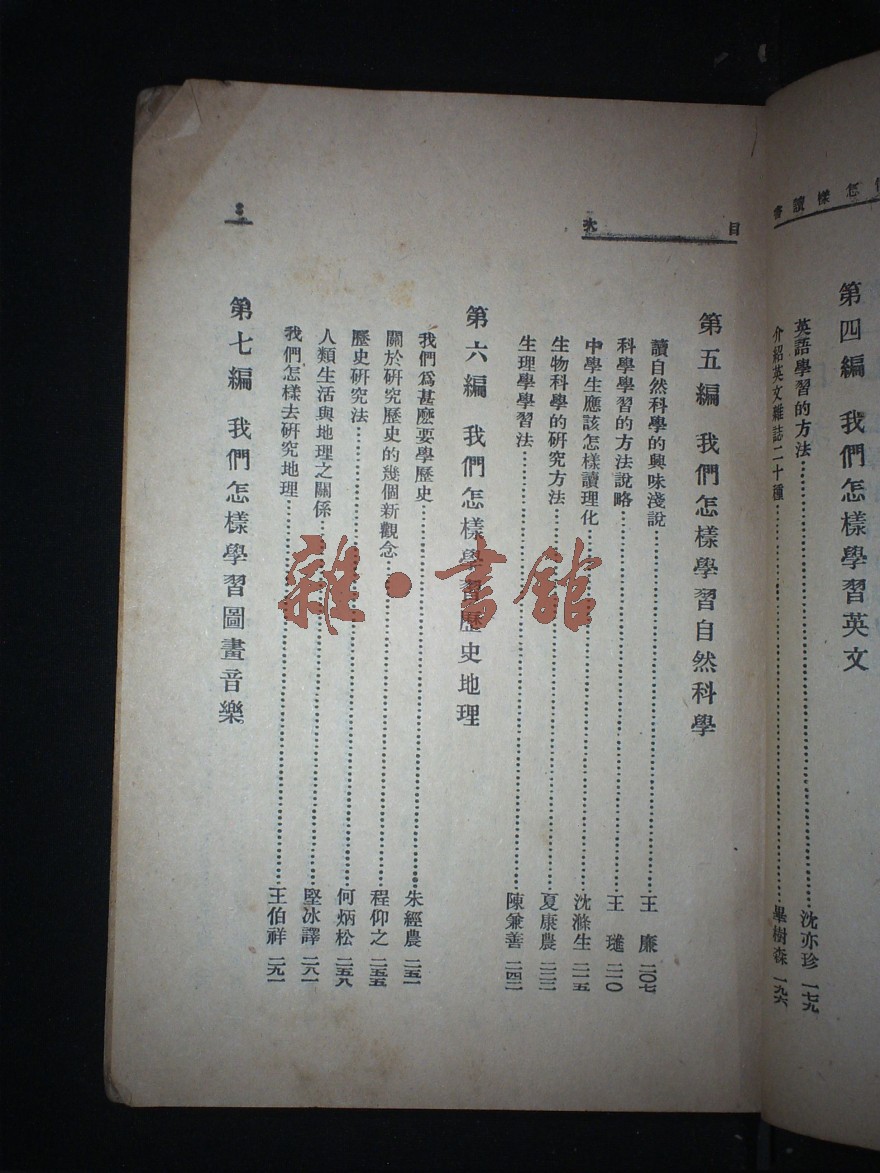 怎樣讀書
第四編 我們怎樣學習英文
英語學習的方法……沈亦珍 一七九
介紹英文雜誌二十種……畢樹森 一九六
目次
第五編 我們怎樣學習自然科學
讀自然科學的興味淺說……王廉 二〇七
科學學習的方法說略……王璡 二一〇
中學生應該怎樣讀理化……沈滌生 二一五
生物科學的研究方法……夏康農 二二三
生理學學習法……陳兼善 二四二
第六編 我們怎樣學習歷史地理
我們爲甚麽要學歷史……朱經農 二五一
關於研究歷史的幾個新觀念……程仰之 二五五
歷史研究法……何炳松 二五八
人類生活與地理之關係……堅冰譯 二八一
我們怎樣去研究地理……王伯祥 二九一
第七編 我們怎樣學習圖畫音樂
雜·書館